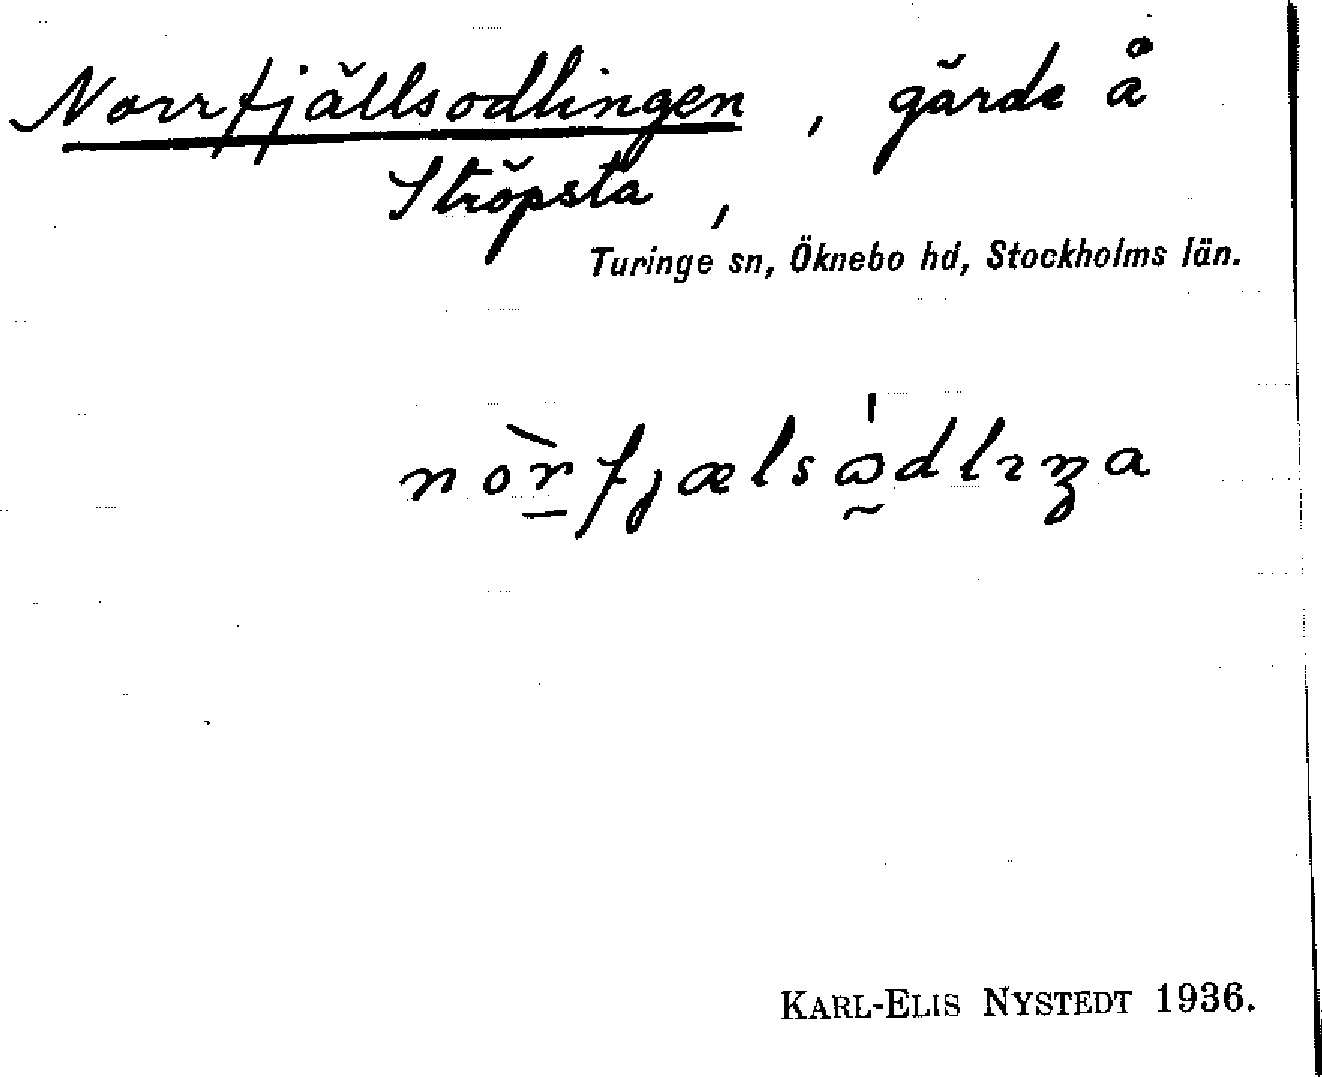 Norrfjällsodlingen, gärde å
Ströpsta,
Turinge sn, Öknebo hd, Stockholms län.
KARL-ELIS NYSTEDT 1936.